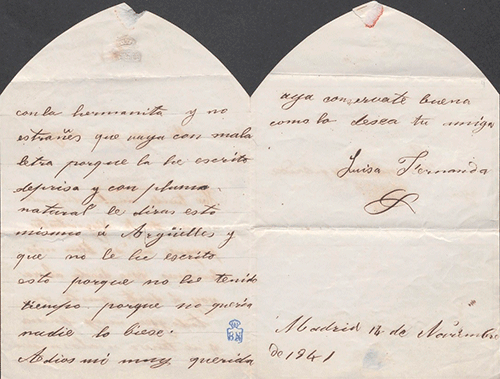 con la hermanita y no
estrañes que vaya con mala
letra porque la he escrito
deprisa y con pluma
natural le diras esto
mismo á Argüelles y
que no le he escrito
esto porque no he tenido
tiempo porque no queria
nadie lo biese.
Adios mi muy querida
aya conservate buena
como lo desea tu amiga
Luisa Fernanda
Madrid de Noviembre
de 1841